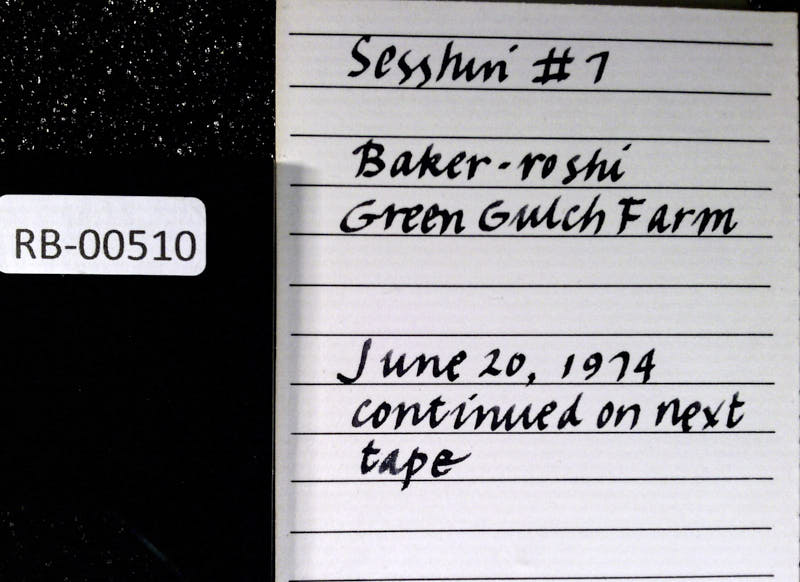 Sesshin #7
Baker-roshi
RB-00510
Green Gulch Farm
June 20, 1974
continued on next
tape